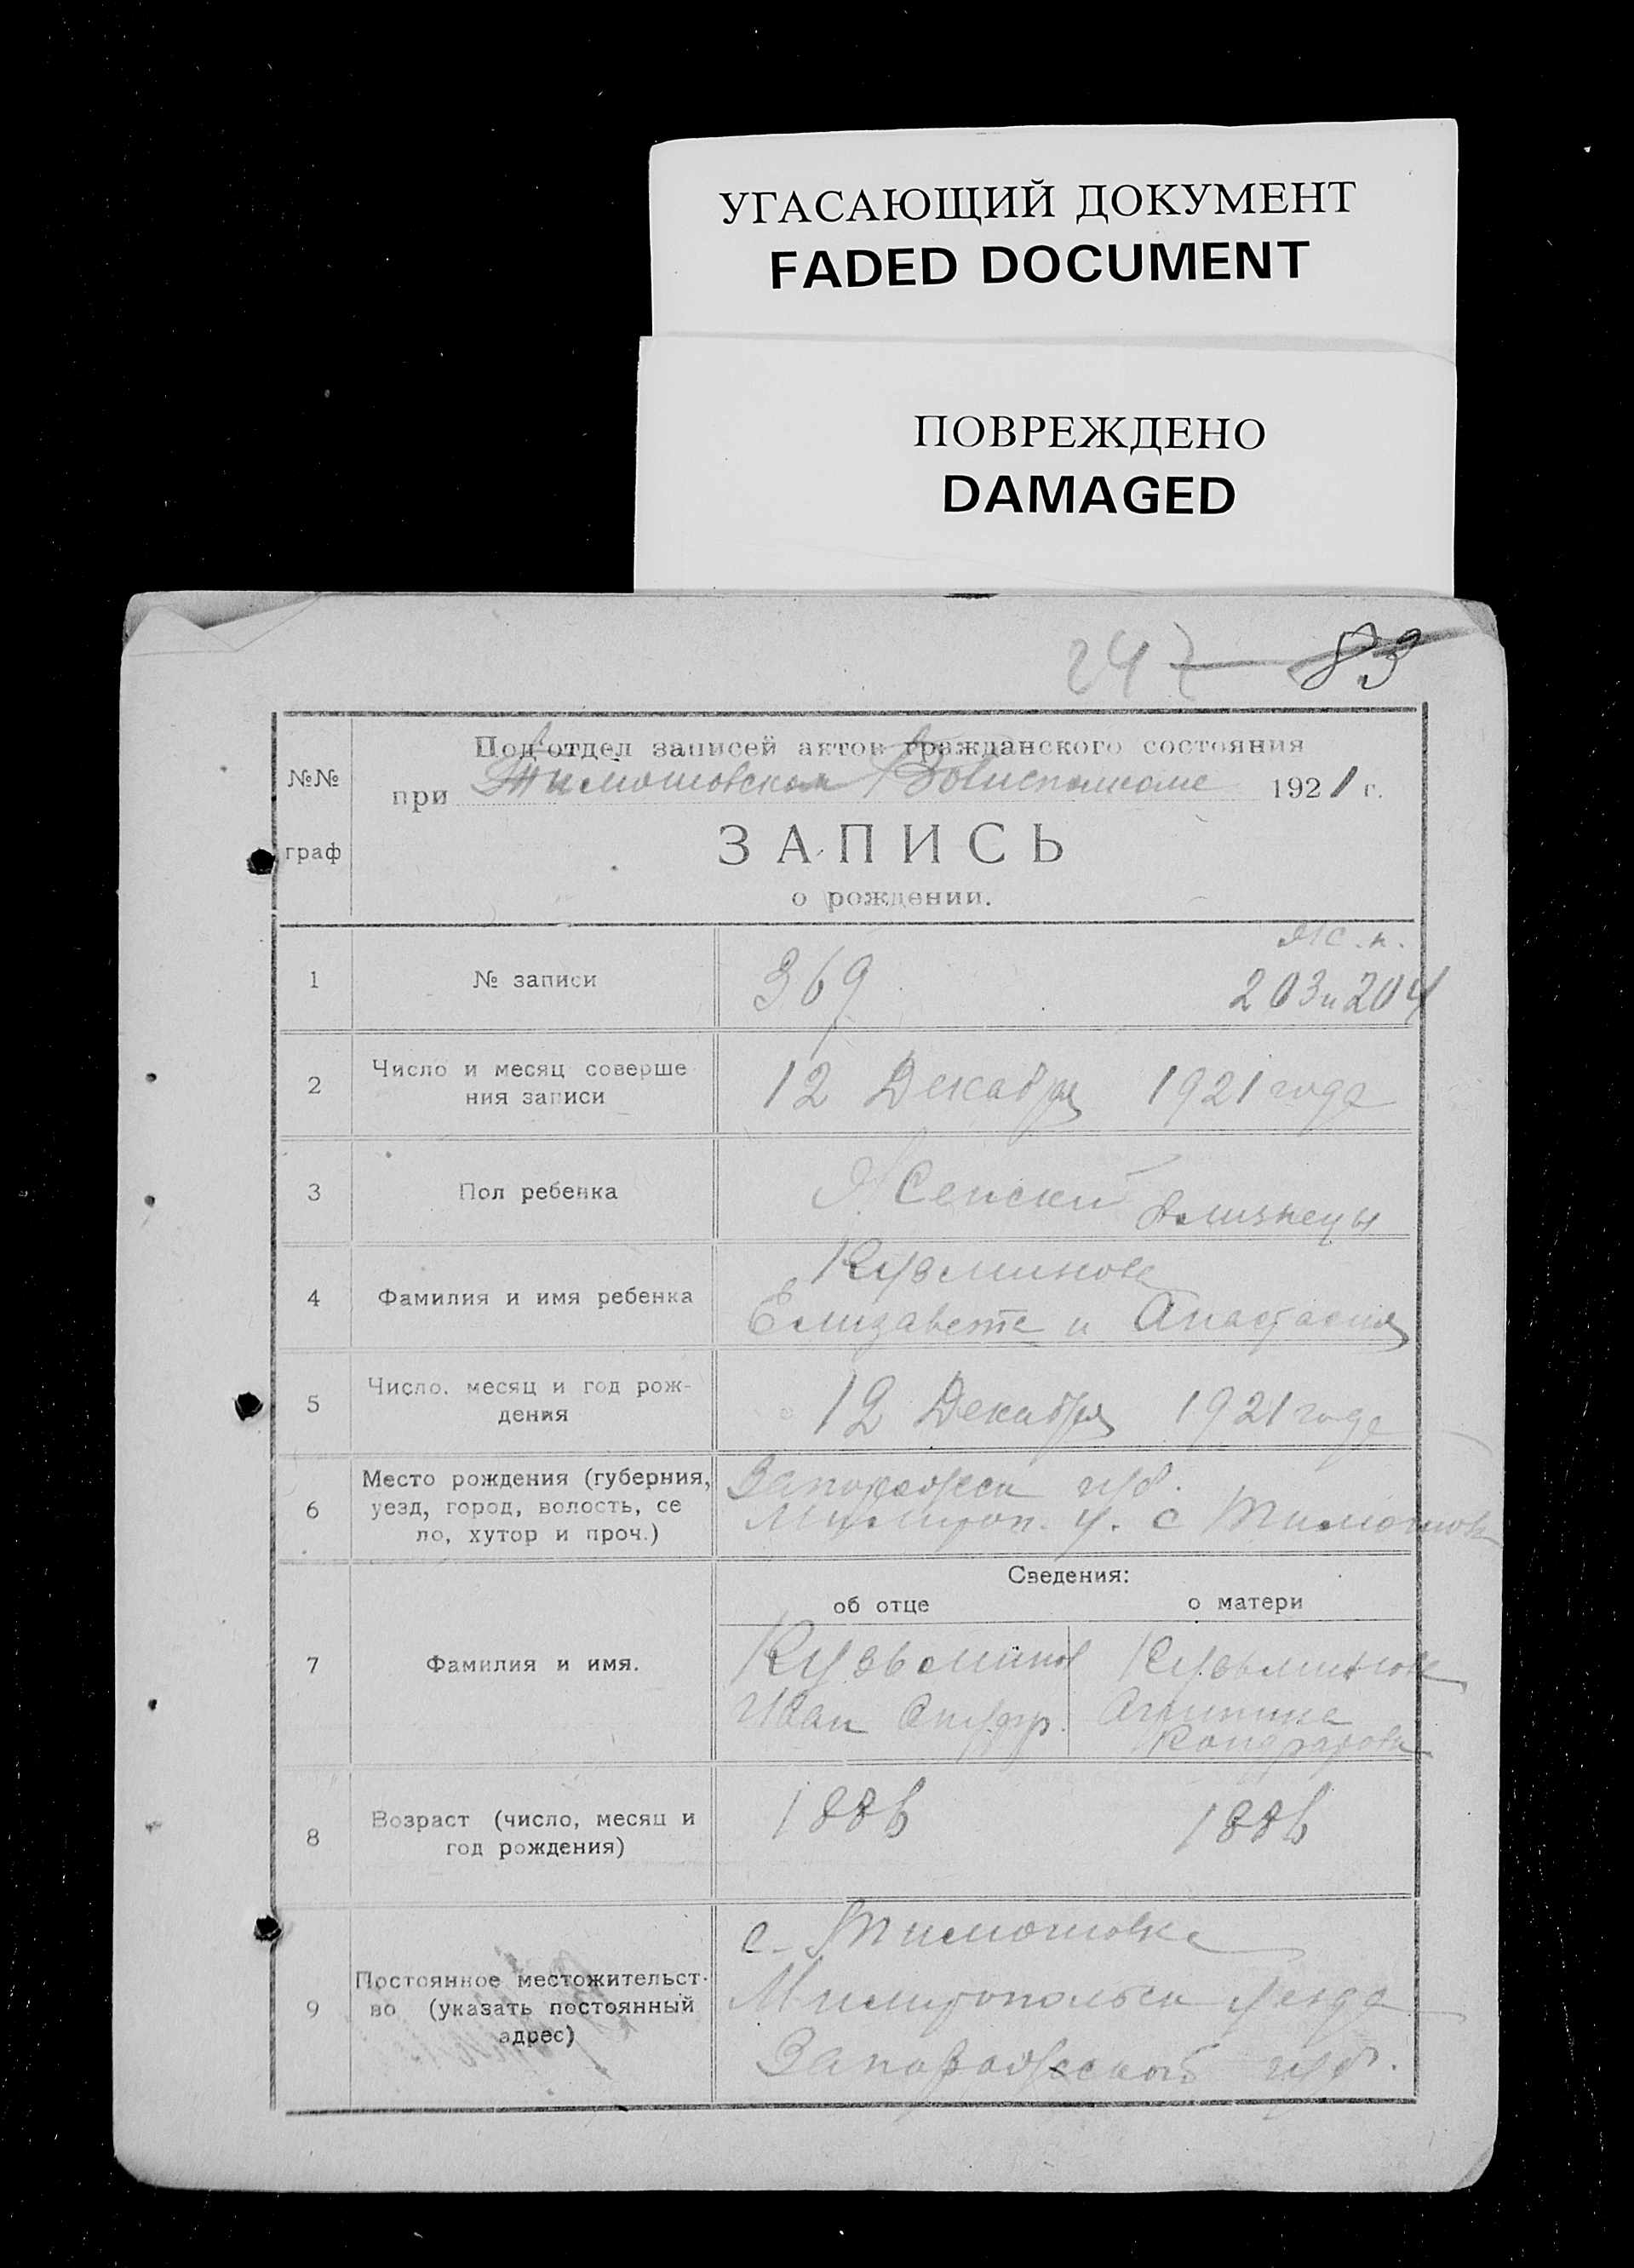 УГАСАЮЩИЙ ДОКУМЕНТ
FADED DOCUMENT
ПОВРЕЖДЕНО
DAMAGED
247 83
№№ граф
Под'отдел записей актов гражданского состояния
при Тимошовском Волисполкоме 1921 г.
ЗАПИСЬ
о рождении.
1 № записи 369 Ж.п. 203 и 204
2 Число и месяц соверше
ния записи 12 Декабря 1921 года
3 Пол ребенка Женский близнецы
4 Фамилия и имя ребенка Кузминова
Елизавета и Анастасия
5 Число, месяц и год рож-
дения 12 Декабря 1921 года
6 Место рождения (губерния,
уезд, город, волость, се
ло, хутор и проч.)
Запорожск губ.
у. с Тимошовка
Сведения:
об отце о матери
7 Фамилия и имя.
Кузьминов
Иван
Кузьминова
Кондратовна
8 Возраст (число, месяц и
год рождения) 1886 1886
9 Постоянное местожительст-
во (указать постоянный
адрес)
с. Тимошовка
Милитопольск уезда
Запорожской губ.